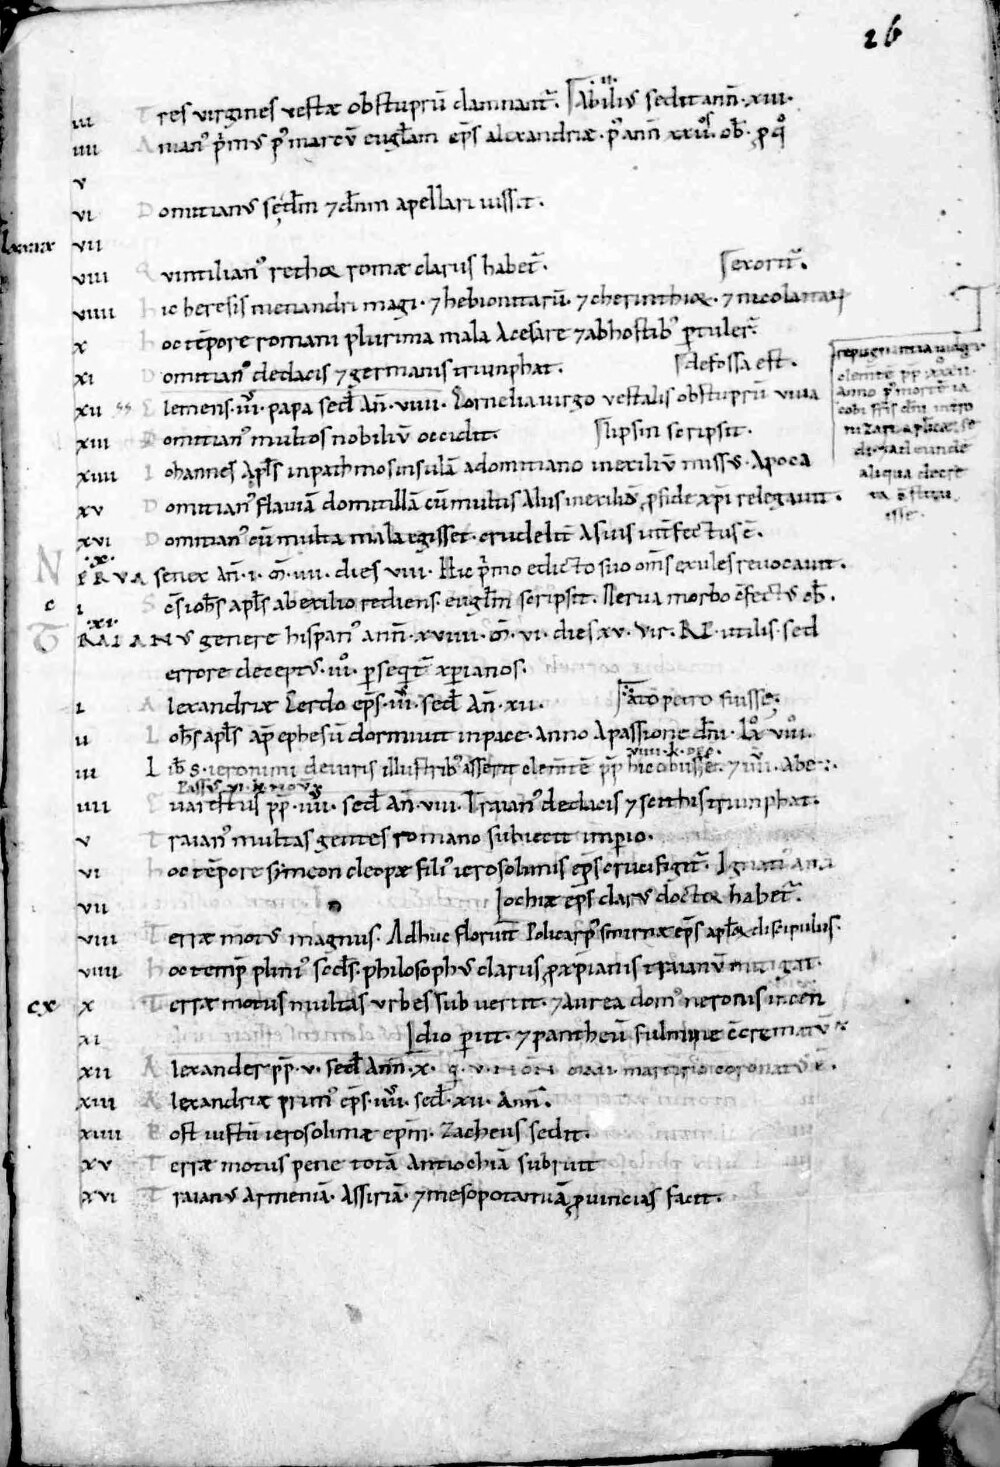 26
iii Tres virgines vestæ obstuprū damnant̄. Abilius sedit anñ. xiii.
iiii Anian' p̄mus p' marcū eugl̄am ep̄s alexandriæ. p' ann̄ xxii. ob̄. p̄ q̊
v
vi Domitianus se d̄m ⁊ dn̄m apellari iussit.
lxxxx vii
viii Quintilian' rethoꝝ romæ clarus habet̄. exorit̄.
viiii hic heresis menandri magi. ⁊ hebionitarū. ⁊ cherinthi ⁊ nicolaitaꝝ
x hoc tēpore romani plurima mala A cesare ⁊ ab hostib' ꝑtuler̄
xi Domitian' de dacis ⁊ germanis triumphat. defossa est.
xii Clemens. iii. papa sed̄ An̄. viiii. Cornelia virgo vestalis obstuprū viva
xiii Domitian' multos nobiliū occidit. lipsin scripsit.
xiiii Iohannes Apl̄s in pathmos insulā a domitiano in exiliū missus. Apoca
xv Domitian' flaviā domitillā cū multis Aliis in exiliū, ꝓ fide xp̄i relegavit.
xvi Domitian' cū multa mala egisset. crudelit̄ A suis int̄fectus ē.
repugnantia
clemēte p̄p̄ xxxii.
anno p' mortē ia
cobi fr̄is dn̄i
aliqua decre
isse.
.x.
NERVA senex An̄. i. m̄. iiii. dies viii. Hic p̄mo edicto suo om̄s exules revocavit.
c i S c̄s ioh̄s apl̄s ab exilio rediens. eugl̄m scripsit. Nerva morbo c̄fectus ob̄.
.xi.
TRAIANUS genere hispan' ann̄. xviiii. m̄. vi. dies xv. vir. RP. utilis. sed
errore deceptus. iii. ꝑseqt̄ xp̄ianos.
i Alexandriæ Cerdo ep̄s. iii. sed̄ An̄. xii. a t̄o petro fuisse.
ii Ioh̄s apl̄s ap̄ ephesū dormivit in pace. Anno A passione dn̄i. lx viii.
viiii. k.
iii Lib̄ S. ieronimi de viris illustrib' asserit clem̄tē p̄p̄ hic obisse. ⁊ iiii. Ab e
Passus vi. k. nov̄
iiii Evaristus p̄p̄. iiii. sed̄ An̄. viii. Traian' de dacis ⁊ scithis triumphat.
v Traian' multas gentes romano subiecit imperio.
vi hoc tēpore symeon cleopæ fili' ierosolimis ep̄s crucifigit̄. Ignati' anti
vii ochiæ ep̄s clarus doctoꝝ habet̄.
viii Terræ motus magnus. Adhuc floruit Policarp' smirnæ ep̄s aploꝝ discipulus.
viiii hoc temp̄ plini' sed̄s. philosophus clarus, ꝓ xp̄ianis traianū mitigat.
cx x Terræ motus multas urbes subvertit. ⁊ Aurea dom' neronis incen
xi dio ꝑiit. ⁊ pantheū fulmine c̄crematū
xii Alexander p̄p̄. v. sed̄ Ann̄. x. q. v. NON mai. martirio coronatus ē.
xiii Alexandriæ primi' ep̄s. iiii. sed̄. xii. Ann̄.
xiiii Post iustū ierosolimæ ep̄m. Zacheus sedit.
xv Terræ motus pene totā Antiochiā subruit
xvi Traianus Armeniā. Assiriā. ⁊ mesopotamiā ꝓvincias facit.